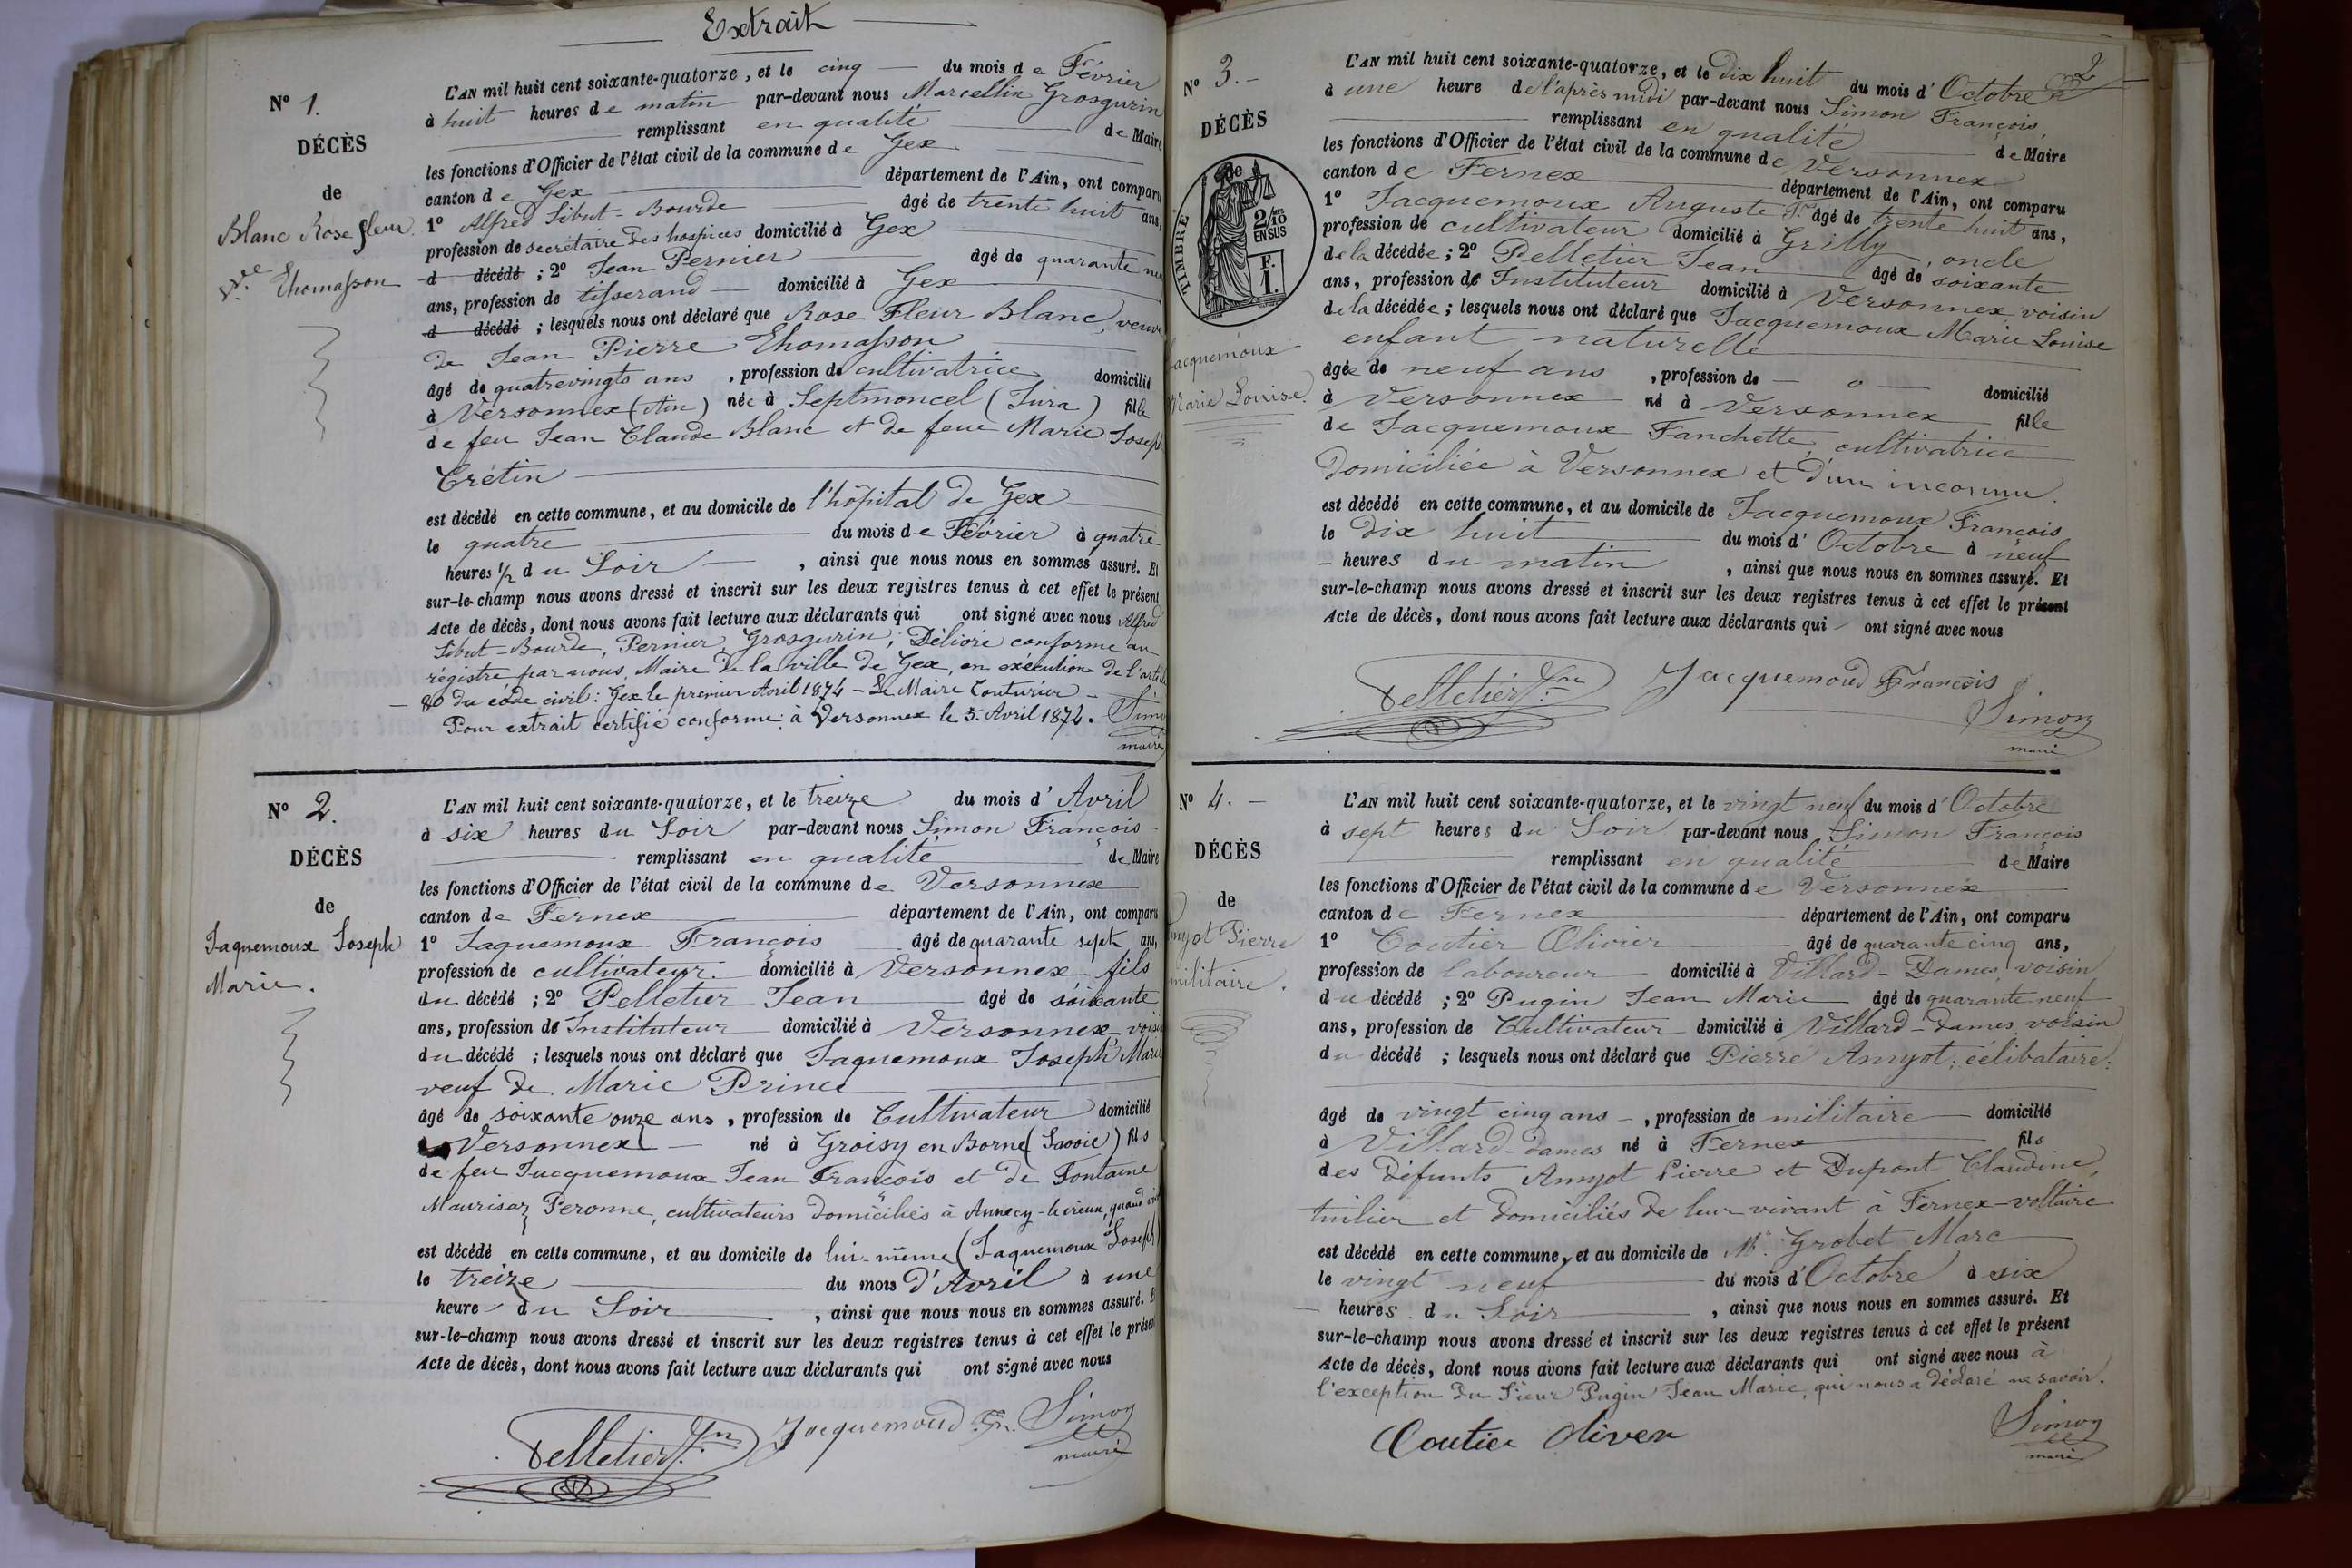 Extrait
N° 1.
DÉCÈS
de
Blanc Rose fleur
Vve Thomasson
L'AN mil huit cent soixante-quatorze, et le cinq du mois de Février
à huit heures de matin par-devant nous Marcellin Grosgurin
remplissant en qualité de Maire
les fonctions d'Officier de l'état civil de la commune de Gex
canton de Gex département de l'Ain, ont comparu
1° Alfred Sibut-Bourde âgé de trente huit ans,
profession de secrétaire des hospices domicilié à Gex
d décédé ; 2° Jean Pernier âgé de quarante
ans, profession de tisserand domicilié à Gex
d décédé ; lesquels nous ont déclaré que Rose Fleur Blanc, veuve
de Jean Pierre Thomasson
âgé de quatrevingts ans , profession de cultivatrice domicilié
à Versonnex (Ain) née à Septmoncel (Jura) fille
de feu Jean Claude Blanc et de feue Marie Joseph
Crétin
est décédé en cette commune, et au domicile de l'hôpital de Gex
le quatre du mois de Février à quatre
heures 1/2 du Soir , ainsi que nous nous en sommes assuré. Et
sur-le-champ nous avons dressé et inscrit sur les deux registres tenus à cet effet le présent
Acte de décès, dont nous avons fait lecture aux déclarants qui ont signé avec nous Alfred
Sibut-Bourde, Pernier, Grosgurin; Délivré conforme au
régistre par nous, Maire de la ville de Gex, en exécution de l'article
80 du code civil: Gex le premier Avril 1874 - Le Maire Couturier -
Pour extrait certifié conforme: à Versonnex le 5. Avril 1874. Simon
maire
N° 2.
DÉCÈS
de
Jaquemoux Joseph
Marie.
L'AN mil huit cent soixante-quatorze, et le treize du mois d'Avril
à six heures du Soir par-devant nous Simon François
remplissant en qualité de Maire
les fonctions d'Officier de l'état civil de la commune de Versonnex
canton de Fernex département de l'Ain, ont comparu
1° Jaquemoux François âgé de quarante sept ans,
profession de cultivateur. domicilié à Versonnex fils
du décédé ; 2° Pelletier Jean âgé de soixante
ans, profession de Instituteur domicilié à Versonnex voisin
du décédé ; lesquels nous ont déclaré que Jaquemoux Joseph Marie
veuf de Marie Prince
âgé de soixante onze ans , profession de Cultivateur domicilié
à Versonnex né à Groisy en Borne (Savoie) fils
de feu Jacquemoux Jean François et de Fontaine
Maurisaz Peronne, cultivateurs domiciliés à Annecy-le vieux, quand
est décédé en cette commune, et au domicile de lui-même (Jaquemoux Joseph)
le treize du mois d'Avril à une
heure du Soir , ainsi que nous nous en sommes assuré. Et
sur-le-champ nous avons dressé et inscrit sur les deux registres tenus à cet effet le présent
Acte de décès, dont nous avons fait lecture aux déclarants qui ont signé avec nous
Pelletier Jn Jacquemoud Fr. Simon
maire
2
N° 3.
DÉCÈS
de
TIMBRE
2/10
EN SUS
F.
1.
Jacquemoux
Marie Louise.
L'AN mil huit cent soixante-quatorze, et le dix huit du mois d'Octobre
à une heure de l'après midi par-devant nous Simon François,
remplissant en qualité de Maire
les fonctions d'Officier de l'état civil de la commune de Versonnex
canton de Fernex département de l'Ain, ont comparu
1° Jacquemoux Auguste âgé de trente huit ans,
profession de cultivateur domicilié à Grilly, oncle
de la décédée; 2° Pelletier Jean âgé de soixante
ans, profession de Instituteur domicilié à Versonnex voisin
de la décédée; lesquels nous ont déclaré que Jacquemoux Marie Louise
enfant naturelle
âgée de neuf ans , profession de - o - domicilié
à Versonnex né à Versonnex fille
de Jacquemoux Fanchette, cultivatrice
domiciliée à Versonnex et d'un inconnu.
est décédé en cette commune, et au domicile de Jacquemoux François
le dix huit du mois d'Octobre à neuf
heures du matin , ainsi que nous nous en sommes assuré. Et
sur-le-champ nous avons dressé et inscrit sur les deux registres tenus à cet effet le présent
Acte de décès, dont nous avons fait lecture aux déclarants qui ont signé avec nous
Pelletier Jn Jacquemoud François
Simon
maire
N° 4.
DÉCÈS
de
Amyot Pierre
militaire.
L'AN mil huit cent soixante-quatorze, et le vingt neuf du mois d'Octobre
à sept heures du Soir par-devant nous Simon François
remplissant en qualité de Maire
les fonctions d'Officier de l'état civil de la commune de Versonnex
canton de Fernex département de l'Ain, ont comparu
1° Coutier Olivier âgé de quarante cinq ans,
profession de laboureur domicilié à Villard-Dames, voisin
du décédé ; 2° Pugin Jean Marie âgé de quarante neuf
ans, profession de Cultivateur domicilié à Villard-dames, voisin
du décédé ; lesquels nous ont déclaré que Pierre Amyot, célibataire.
âgé de vingt cinq ans , profession de militaire domicilié
à Villard-dames né à Fernex fils
des défunts Amyot Pierre et Dupont Claudine,
tuilier et domiciliés de leur vivant à Fernex-voltaire
est décédé en cette commune, et au domicile de Mr. Grobet Marc
le vingt neuf du mois d'Octobre à six
heures du Soir , ainsi que nous nous en sommes assuré. Et
sur-le-champ nous avons dressé et inscrit sur les deux registres tenus à cet effet le présent
Acte de décès, dont nous avons fait lecture aux déclarants qui ont signé avec nous à
l'exception du Sieur Pugin Jean Marie, qui nous a déclaré ne savoir.
Coutier Oliver Simon
maire